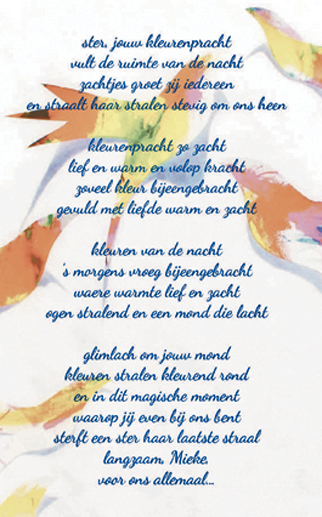 ster, jouw kleurenpracht
vult de ruimte van de nacht
zachtjes groet zij iedereen
en straalt haar stralen stevig om ons heen
kleurenpracht zo zacht
lief en warm en volop kracht
zoveel kleur bijeengebracht
gevuld met liefde warm en zacht
kleuren van de nacht
's morgens vroeg bijeengebracht
waere warmte lief en zacht
ogen stralend en een mond die lacht
glimlach om jouw mond
kleuren stralen kleurend rond
en in dit magische moment
waarop jij even bij ons bent
sterft een ster haar laatste straal
langzaam, Mieke,
voor ons allemaal...